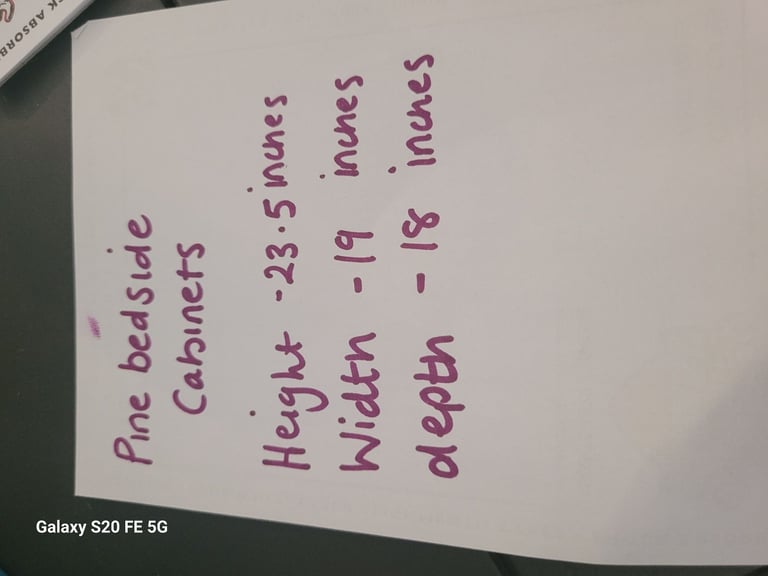 Pine bedside
Cabinets
Height - 23.5 inches
Width - 19 inches
depth - 18 inches
K ABSORB
Galaxy S20 FE 5G